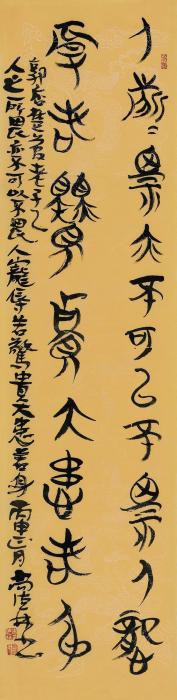 人之所畏亦不可以不畏人寵
辱若驚貴大患若身
郭店楚簡老子乙
人之所畏亦不可以不畏人寵辱若驚貴大患若身丙申月尚